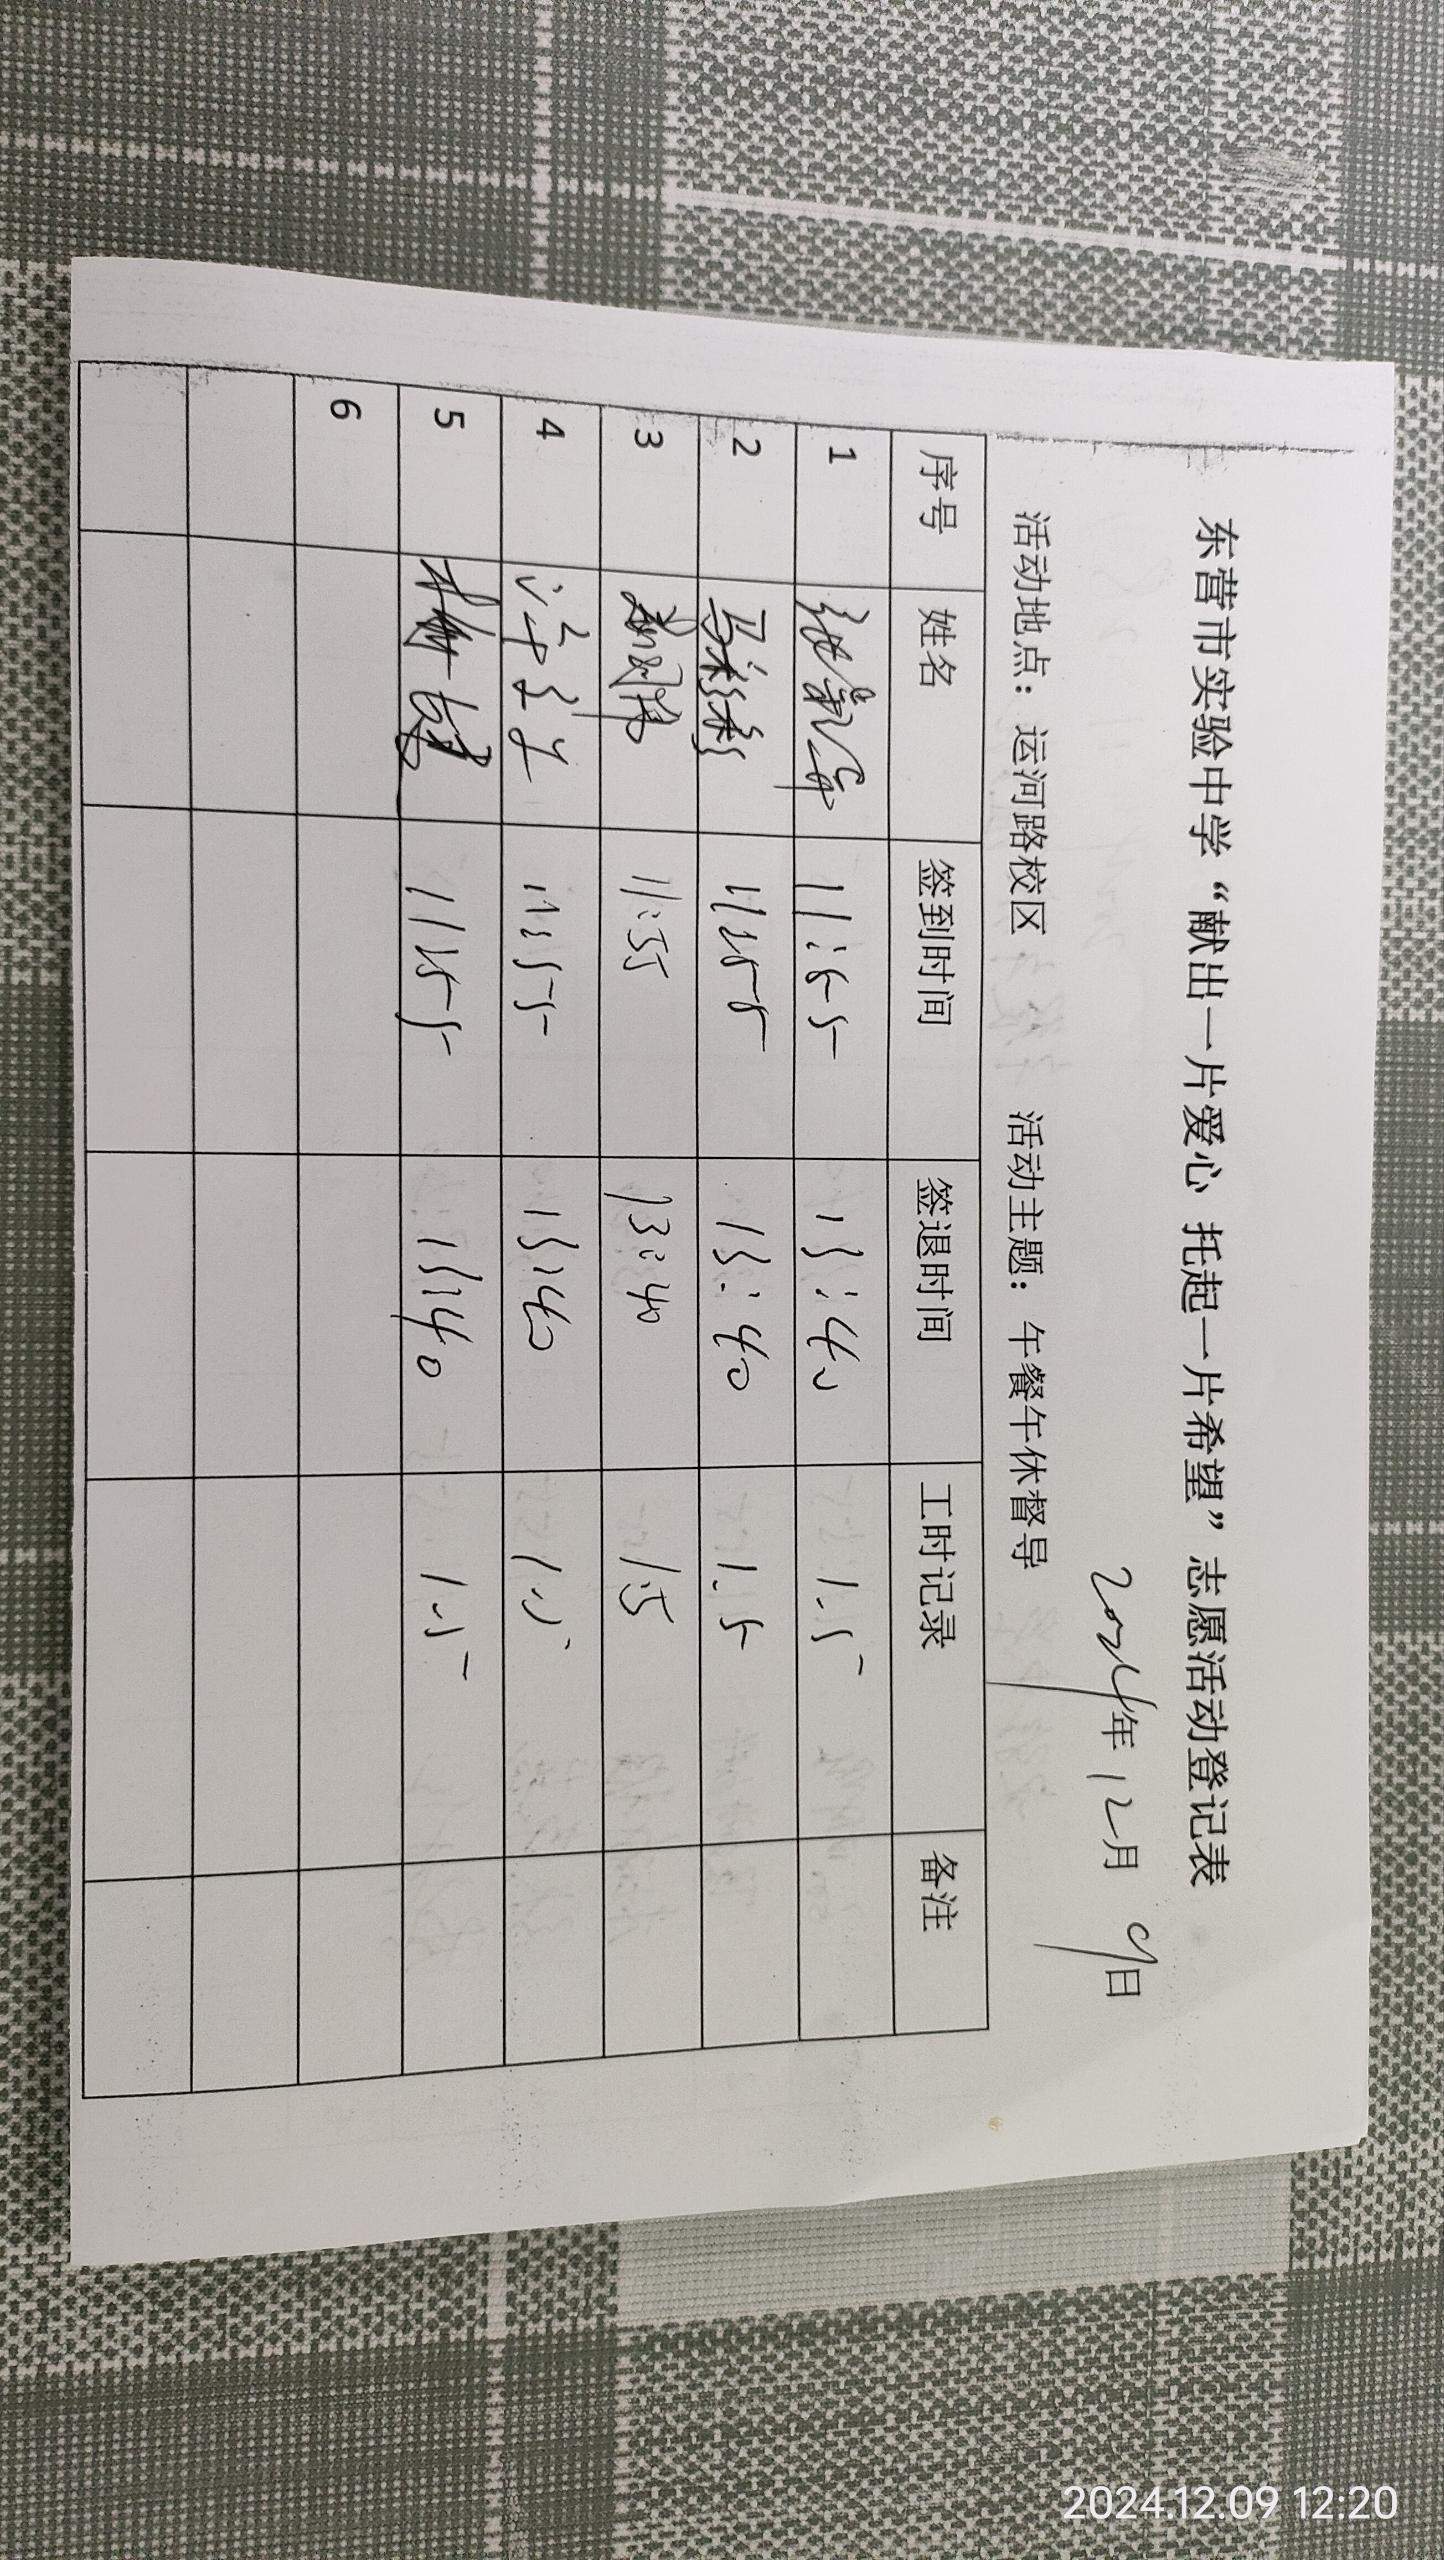 东营市实验中学“献出一片爱心 托起一片希望”志愿活动登记表
2024年12月9日
活动地点：运河路校区 活动主题：午餐午休督导
序号 姓名 签到时间 签退时间 工时记录 备注
1 11:55 13:40 1.5
2 马彩彩 11:55 13:40 1.5
3 11:55 13:40 1.5
4 11:55 13:40 1.5
5 11:55 13:40 1.5
6
2024.12.09 12:20